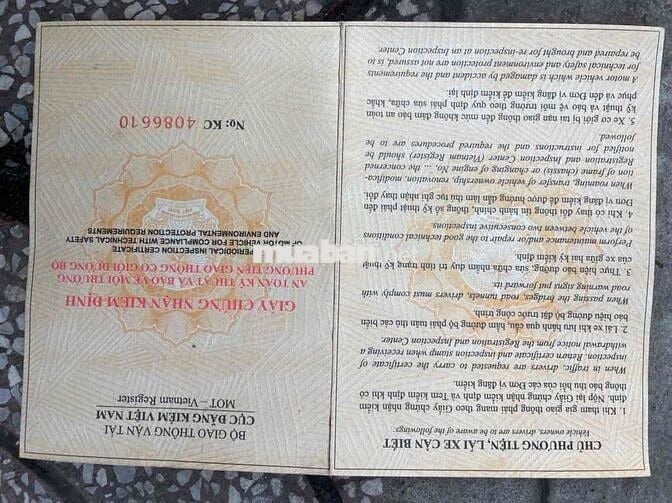 BỘ GIAO THÔNG VẬN TẢI
CỤC ĐĂNG KIỂM VIỆT NAM
MOT – Vietnam Register
GIẤY CHỨNG NHẬN KIỂM ĐỊNH
AN TOÀN KỸ THUẬT VÀ BẢO VỆ MÔI TRƯỜNG
PHƯƠNG TIỆN GIAO THÔNG CƠ GIỚI ĐƯỜNG BỘ
PERIODICAL INSPECTION CERTIFICATE
OF MOTOR VEHICLE FOR COMPLIANCE WITH TECHNICAL SAFETY
AND ENVIRONMENTAL PROTECTION REQUIREMENTS
No: KC 4086610
CHỦ PHƯƠNG TIỆN, LÁI XE CẦN BIẾT
Vehicle owners, drivers are to be aware of the followings
1. Khi tham gia giao thông phải mang theo Giấy chứng nhận kiểm
định. Nộp lại Giấy chứng nhận kiểm định và Tem kiểm định khi có
thông báo thu hồi của các Đơn vị đăng kiểm.
When in traffic, drivers are requested to carry the certificate of
inspection. Return certificate and inspection stamp when receiving a
withdrawal notice from the Registration and Inspection Center.
2. Lái xe khi lưu hành qua cầu, hầm đường bộ phải tuân thủ các biển
báo hiệu đường bộ đặt trước công trình.
When passing the bridges, road tunnels, drivers must comply with
road warning signs put forwards its.
3. Thực hiện bảo dưỡng, sửa chữa nhằm duy trì tình trạng kỹ thuật
của xe giữa hai kỳ kiểm định.
Perform maintenance and/or repair to the good technical conditions
of the vehicle between two consecutive inspections.
4. Khi có thay đổi thông tin hành chính, thông số kỹ thuật phải đến
Đơn vị đăng kiểm để được hướng dẫn làm thủ tục ghi nhận thay đổi.
When roaming, transfer of vehicle ownership, renovation, modifica-
tion of frame (chassis) or changing of engine No, ... the concerned
Registration and Inspection Center (Vietnam Register) should be
notified for instructions and the required procedures are to be
followed.
5. Xe cơ giới bị tai nạn giao thông đến mức không đảm bảo an toàn
kỹ thuật và bảo vệ môi trường theo quy định phải sửa chữa, khắc
phục và đến Đơn vị đăng kiểm để kiểm định lại.
A motor vehicle which is damaged by accident and the requirements
for technical safety and environment protection are not assured, is to
be repaired and brought for re-inspection at an Inspection Center.